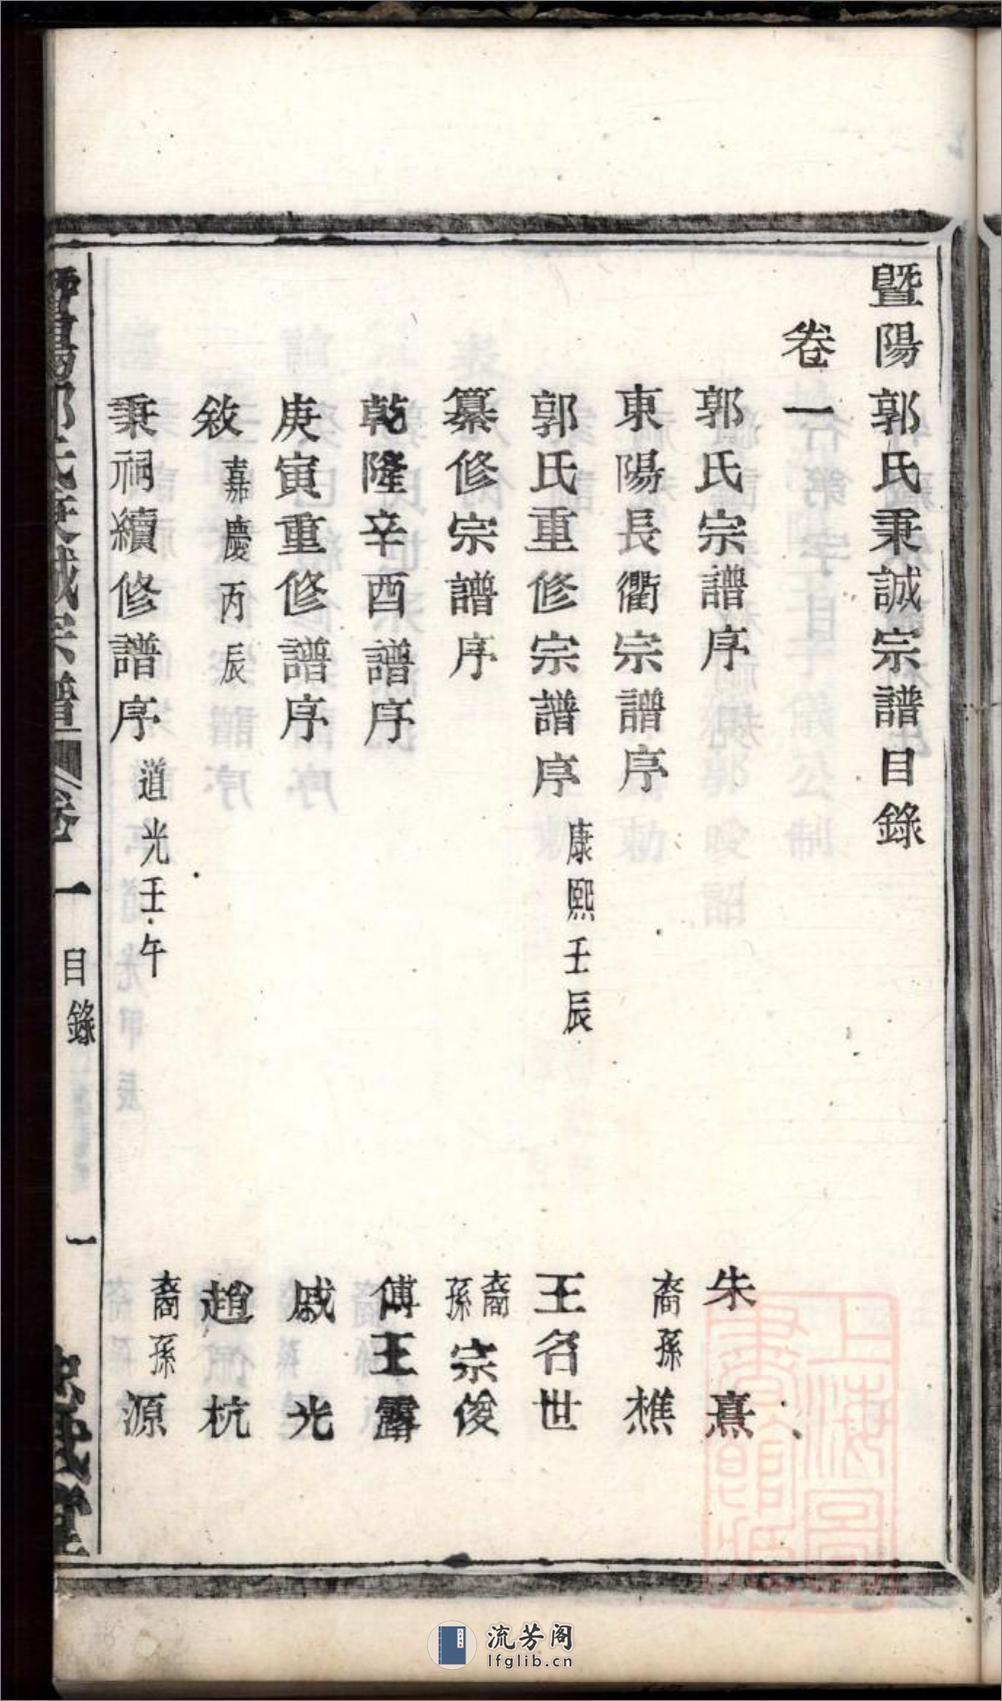 暨陽郭氏秉誠宗譜目錄
卷一
郭氏宗譜序 朱熹
東陽長衢宗譜序 裔孫 樵
郭氏重修宗譜序 康熙壬辰 王名世
纂修宗譜序 裔孫 宗俊
乾隆辛酉譜序 傅王露
庚寅重修譜序 戚光
敘 嘉慶丙辰 趙杭
秉祠續修譜序 道光壬午 裔孫 源
暨陽郭氏秉誠宗譜 卷一 目錄 一
上海圖書館藏
流芳阁
lfglib.cn